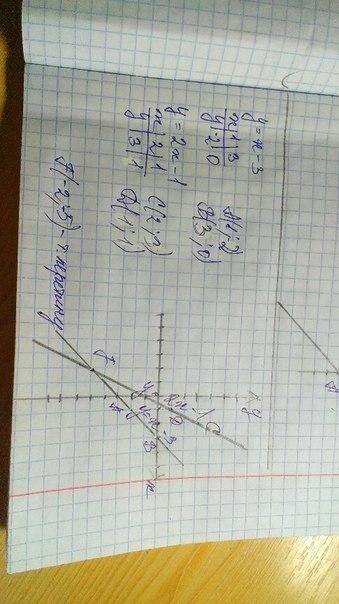 y = x - 3
x | 1 | 3
y | -2 | 0
A(1; -2)
B(3; 0)
y = 2x - 1
x | 2 | 1
y | 3 | 1
C(2; 3)
D(1; 1)
F(-2; -5) - т. перетину
y
x
C
D
B
A
F
y=x-3
A